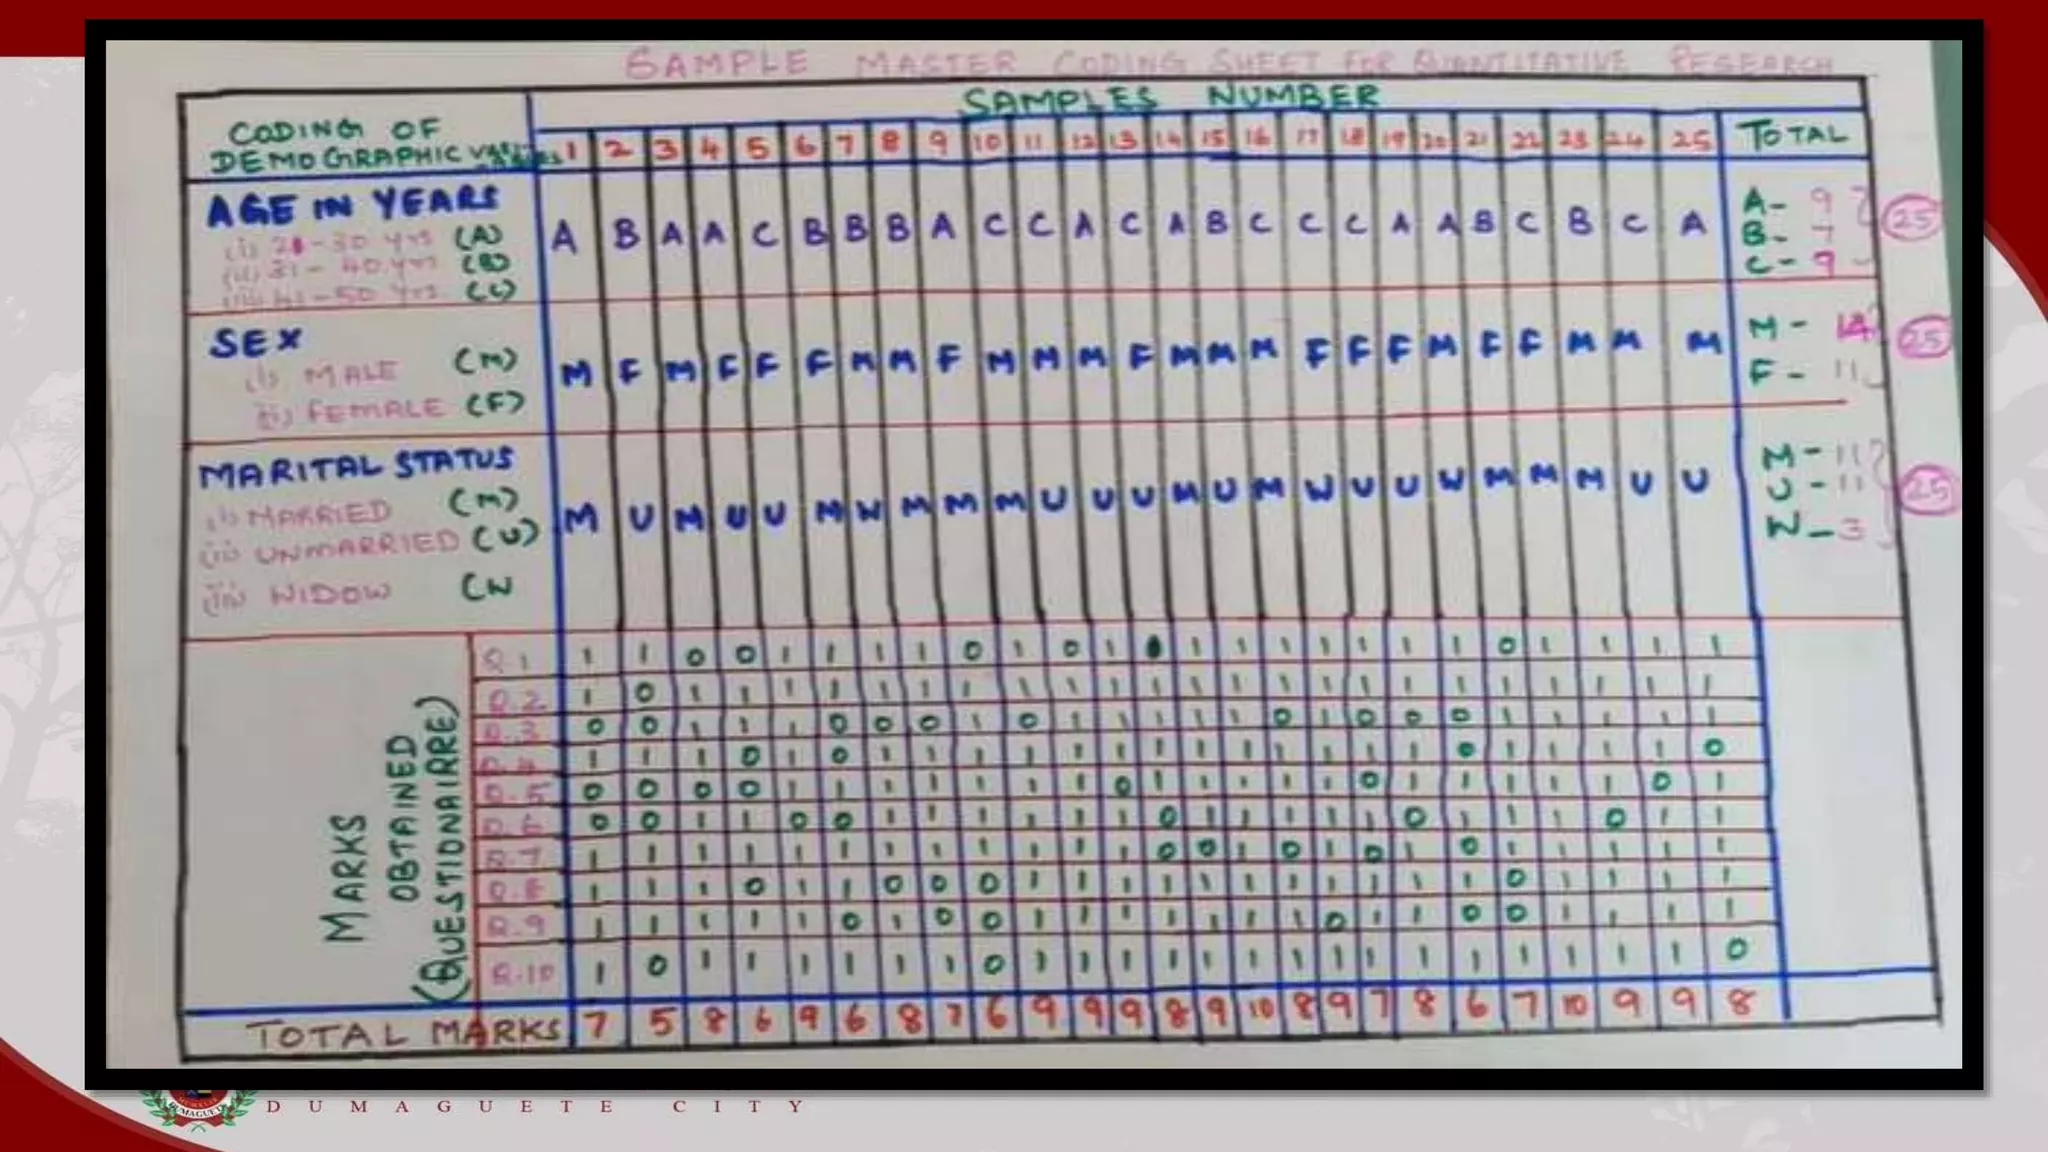 SAMPLE MASTER CODING SHEET FOR QUANTITATIVE RESEARCH
SAMPLES NUMBER
CODING OF DEMOGRAPHIC 1 2 3 4 5 6 7 8 9 10 11 12 13 14 15 16 17 18 19 20 21 22 23 24 25 TOTAL
AGE IN YEARS
(i) 21-30 yrs (A)
(ii) 31-40 yrs (B)
(iii) 41-50 yrs (C)
A B A A C B B B A C C A C A B C C C A A B C B C A
A- 9
B- 7
C- 9
25
SEX
(i) MALE (M)
(ii) FEMALE (F)
M F M F F F M M F M M M F M M M F F F M F F M M M
M- 14
F- 11
25
MARITAL STATUS
(i) MARRIED (M)
(ii) UNMARRIED (U)
(iii) WIDOW (W
M U M U U M W M M M U U U M U M W U U W M M M U U
M-11
U-11
W-3
25
MARKS OBTAINED (QUESTIONAIRRE)
Q.1 1 1 0 0 1 1 1 1 0 1 0 1 1 1 1 1 1 1 1 0 1 1 1 1
Q.2 1 0 1 1 1 1 1 1 1 1 1 1 1 1 1 1 1 1 1 1 1 1 1 1 1
Q.3 0 0 1 1 1 0 0 0 1 0 1 1 1 1 1 0 1 0 0 0 1 1 1 1 1
Q.4 1 1 1 0 1 0 1 1 1 1 1 1 1 1 1 1 1 1 1 0 1 1 1 1 0
Q.5 0 0 0 0 1 1 1 1 1 1 1 0 1 1 1 1 1 0 1 1 1 1 1 0 1
Q.6 0 0 1 1 0 0 1 1 1 1 1 1 0 1 1 1 1 1 0 1 1 1 0 1 1
Q.7 1 1 1 1 1 1 1 1 1 1 1 1 0 0 1 0 1 0 1 0 1 1 1 1 1
Q.8 1 1 1 0 1 1 0 0 0 1 1 1 1 1 1 1 1 1 1 1 0 1 1 1 1
Q.9 1 1 1 1 1 0 1 0 0 1 1 1 1 1 1 1 0 1 1 0 0 1 1 1 1
Q.10 1 0 1 1 1 1 1 1 0 1 1 1 1 1 1 1 1 1 1 1 1 1 1 1 0
TOTAL MARKS 7 5 8 6 9 6 8 7 6 9 9 9 8 9 10 8 9 7 8 6 7 10 9 9 8
DUMAGUETE CITY